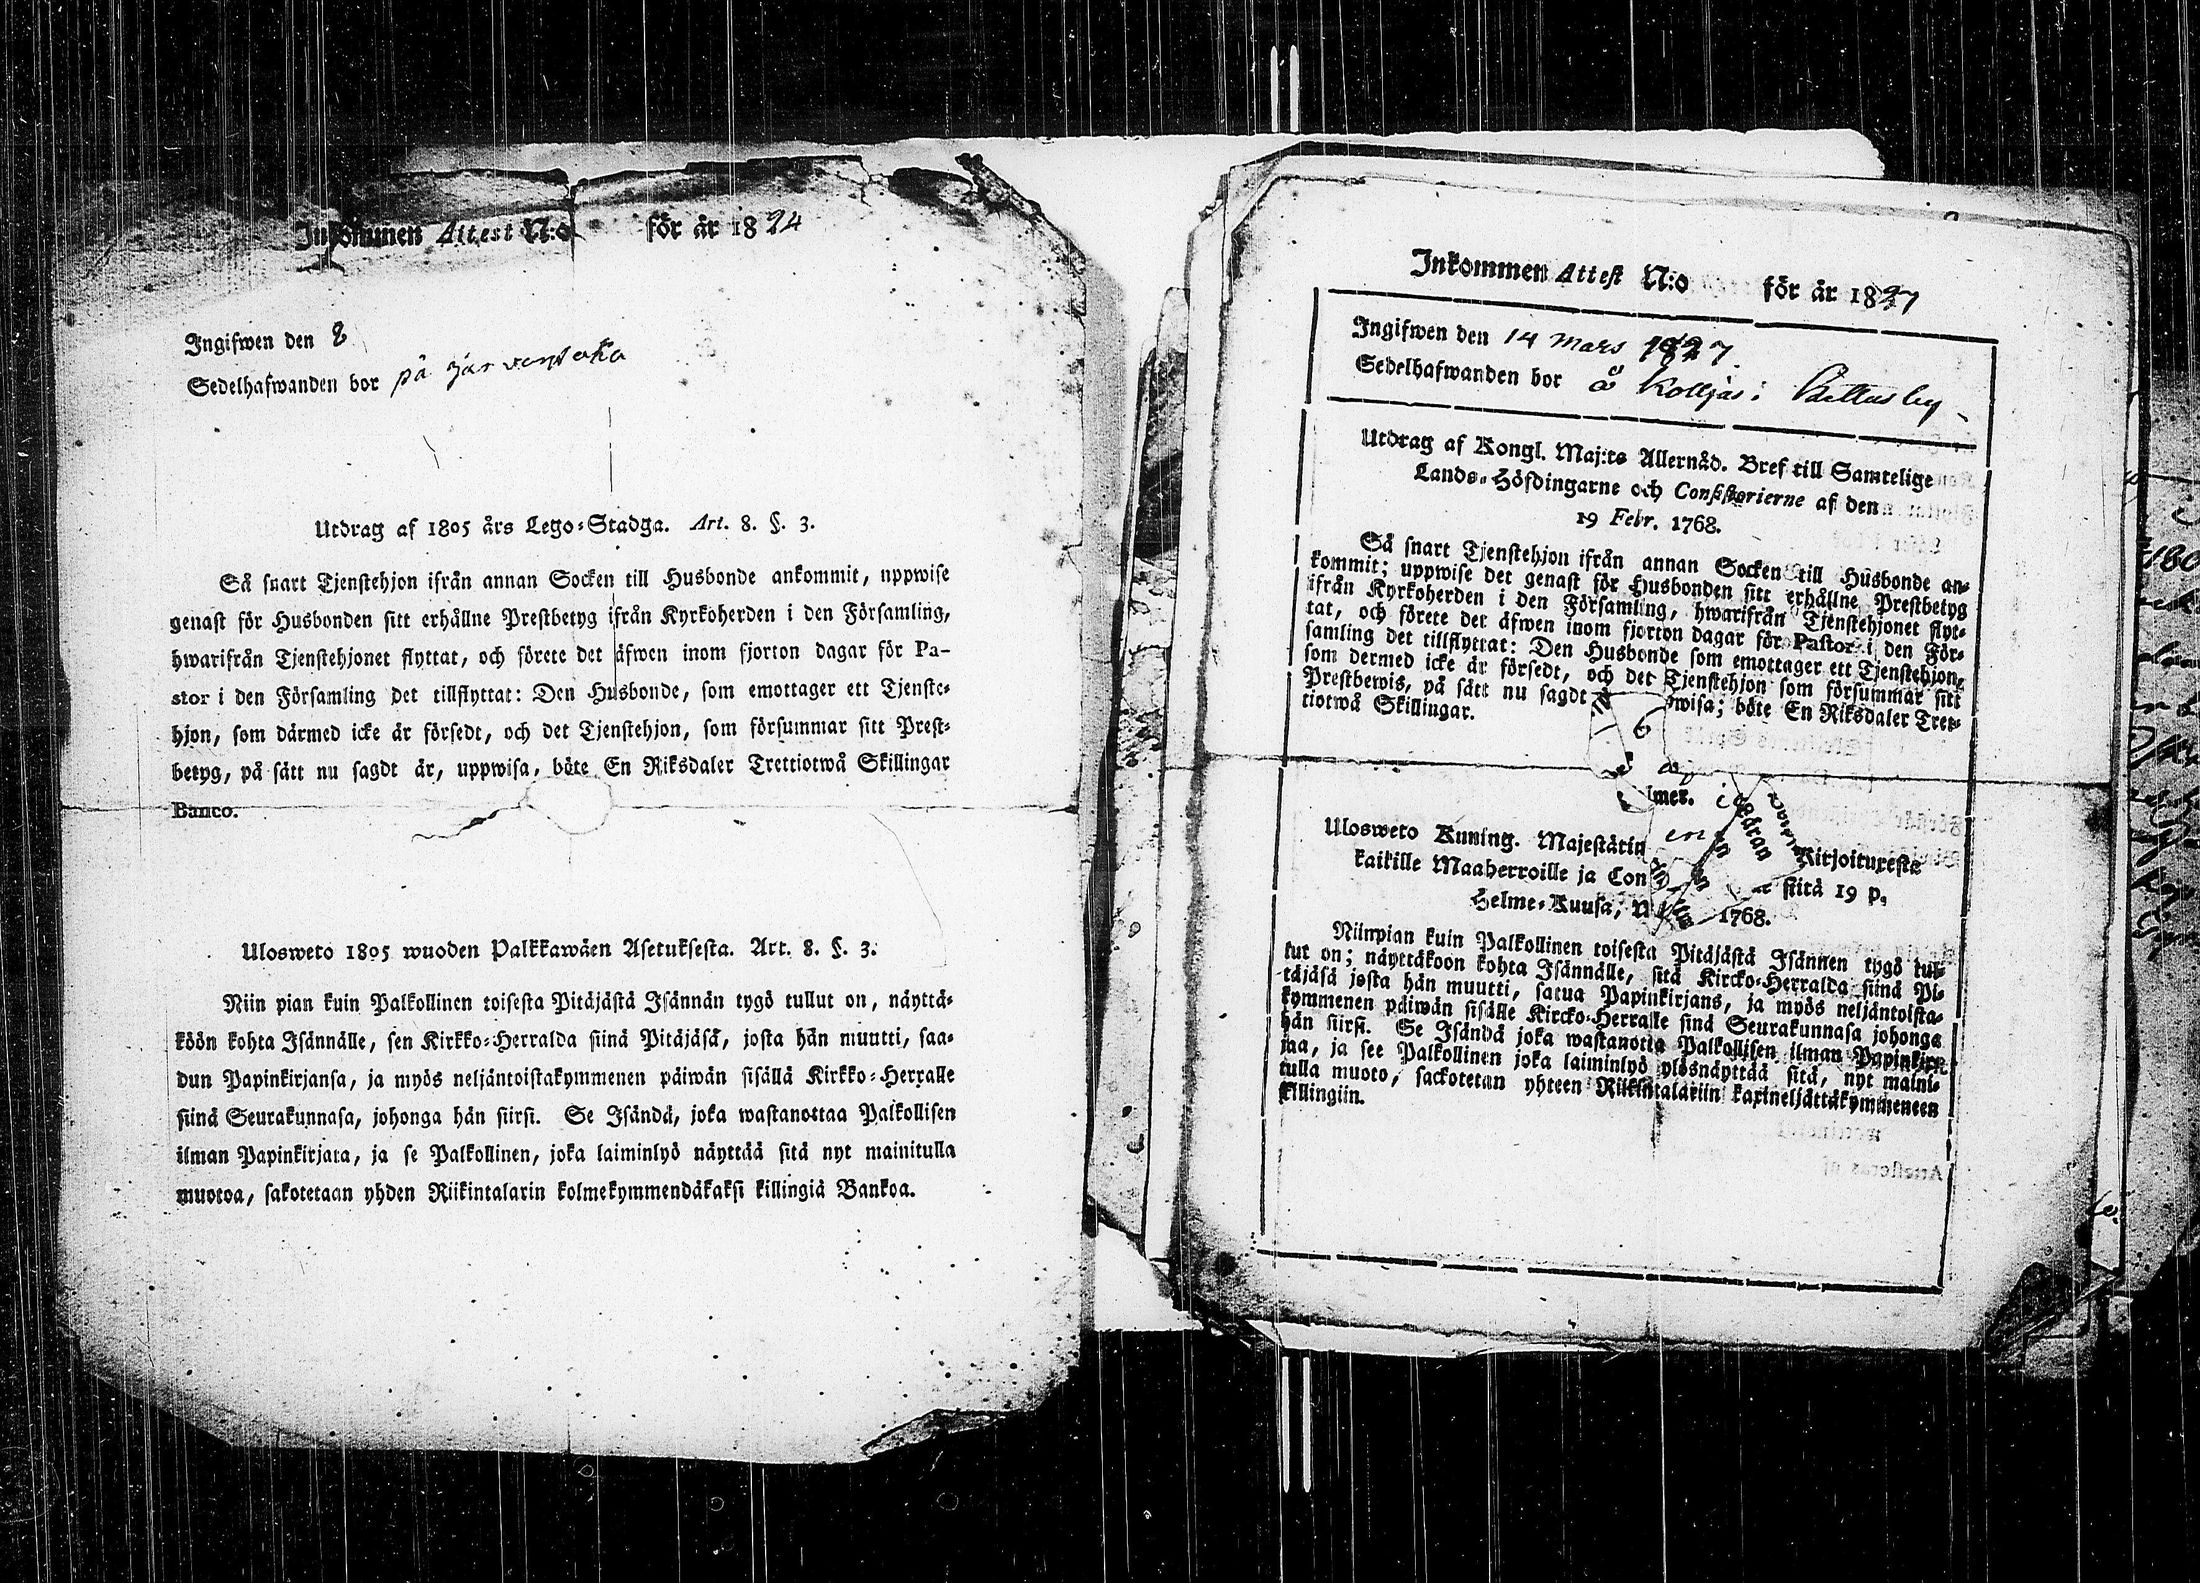 Inkommen Attest N:o för år 1824
Ingifwen den 8
Sedelhafwanden bor på
Utdrag af 1805 års Lego-Stadga. Art. 8. §. 3.
Så snart Tjenstehjon ifrån annan Socken till Husbonde ankommit, uppwise
genast för Husbonden sitt erhållne Prestbetyg ifrån Kyrkoherden i den Församling,
hwarifrån Tjenstehjonet flyttat, och förete det äfwen inom fjorton dagar för Pa-
stor i den Församling det tillflyttat: Den Husbonde, som emottager ett Tjenste-
hjon, som därmed icke är försedt, och det Tjenstehjon, som försummar sitt Prest-
betyg, på sätt nu sagdt är, uppwisa, böte En Riksdaler Trettiotwå Skillingar
Banco.
Ulosweto 1805 wuoden Palkkawäen Asetuksesta. Art. 8. §. 3.
Niin pian kuin Palkollinen toisesta Pitäjästä Isännän tygö tullut on, näyttä-
köön kohta Isännälle, sen Kirkko-Herralda siinä Pitäjäsä, josta hän muutti, saa-
dun Papinkirjansa, ja myös neljäntoistakymmenen päiwän sisällä Kirkko-Herralle
siinä Seurakunnasa, johonga hän siirsi. Se Isändä, joka wastanottaa Palkollisen
ilman Papinkirjata, ja se Palkollinen, joka laiminlyö näyttää sitä nyt mainitulla
muotoa, sakotetaan yhden Riikintalarin kolmekymmendäkaksi killingiä Bankoa.
Inkommen Attest N:o för år 1827
Ingifwen den 14 Mars 1827.
Sedelhafwanden bor å Kolljas i
Utdrag af Kongl. Maj:ts Allernåd. Bref till Samtelige
Lands-Höfdingarne och Consistorierne af den
19 Febr. 1768.
Så snart Tjenstehjon ifrån annan Socken till Husbonde an-
kommit; uppwise det genast för Husbonden sitt erhållne Prestbetyg
ifrån Kyrkoherden i den Församling, hwarifrån Tjenstehjonet flyt-
tat, och förete det äfwen inom fjorton dagar för Pastor i den För-
samling det tillflyttat: Den Husbonde som emottager ett Tjenstehjon,
som dermed icke är försedt, och det Tjenstehjon som försummar sitt
Prestbewis, på sätt nu sagdt wisa; böte En Riksdaler Tret-
tiotwå Skillingar.
6
af
lmer.
Ulosweto Kuning. Majestätin Kirjoituxesta
kaikille Maaherroille ja Con siitä 19 p.
Helme-Kuusa, 1768.
Niinpian kuin Palkollinen toisesta Pitäjästä Isännen tygö tul-
lut on; näyttäkoon kohta Isännälle, sitä Kircko-Herralda siinä Pi-
täjäsä josta hän muutti, satua Papinkirjans, ja myös neljäntoista-
kymmenen päiwän sisälle Kircko-Herralle sinä Seurakunnasa johonga
hän siirsi. Se Isändä joka wastanotta Palkollisen ilman Papinkirja-
jaa, ja see Palkollinen joka laiminlyö ylösnäyttää sitä, nyt maini-
tulla muoto, sackotetan yhteen Riikintalariin kaxineljättäkymmeneen
killingiin.